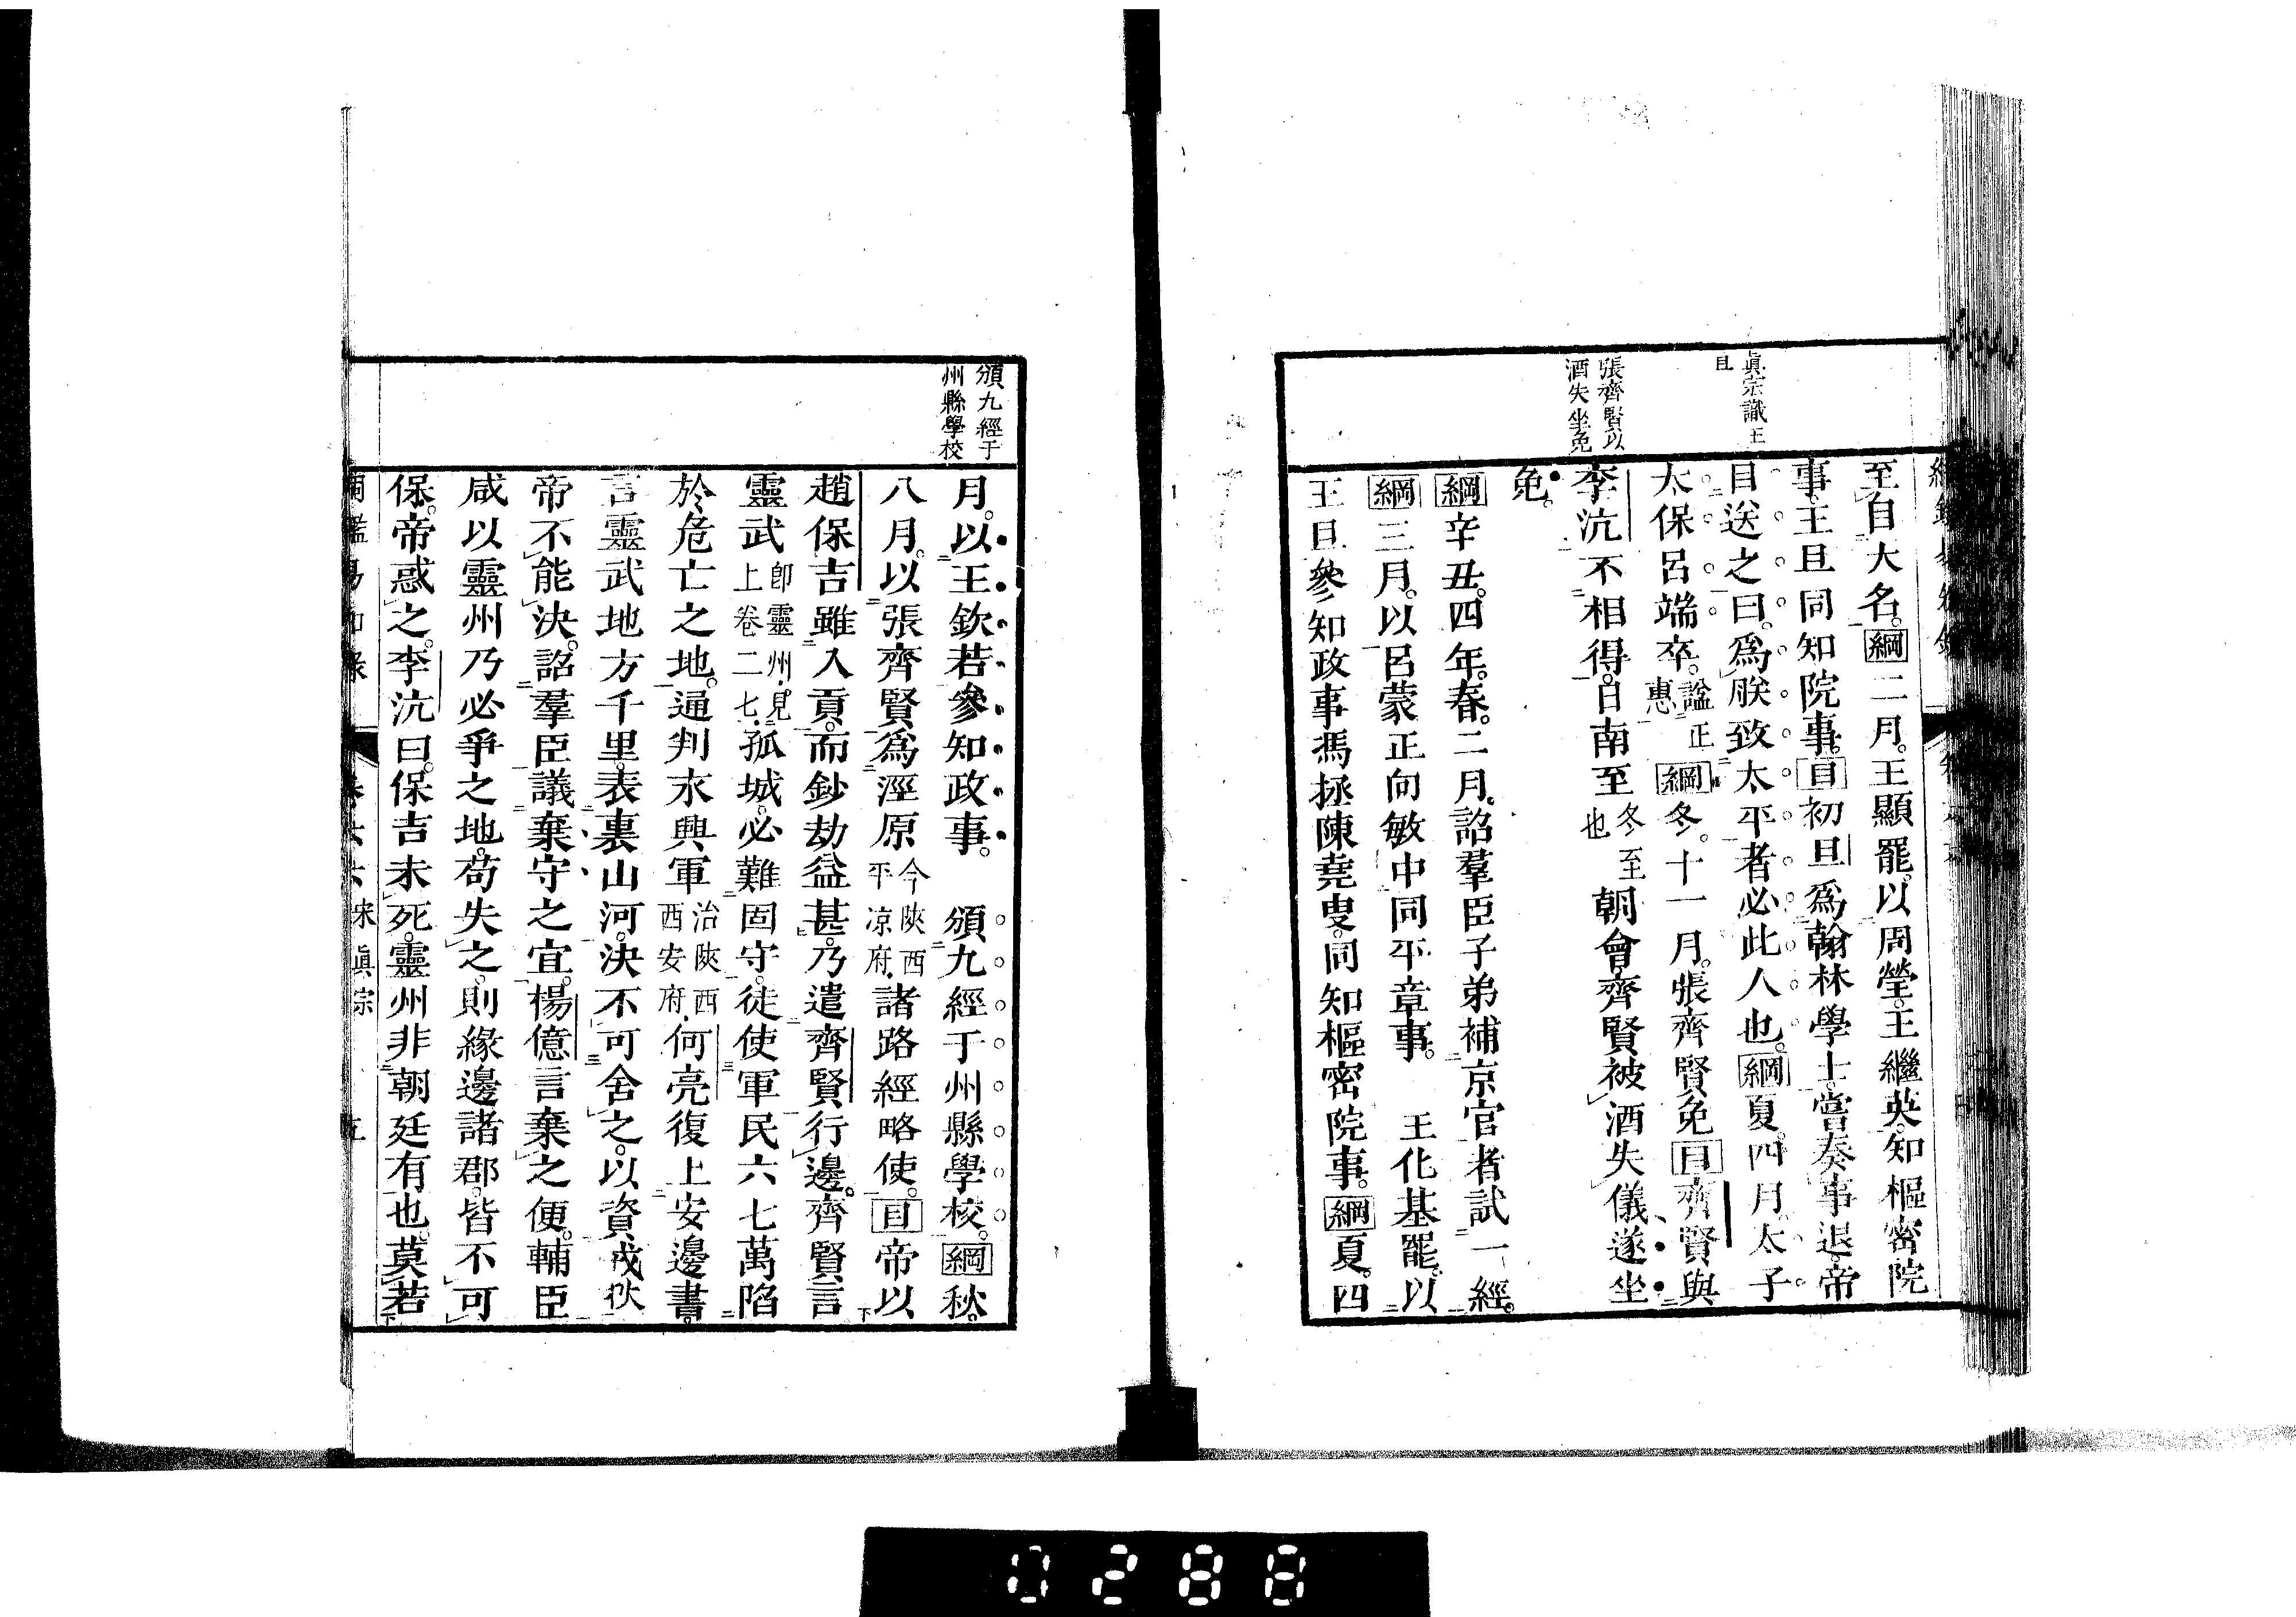 眞宗識王
旦
張齊賢以
酒失坐免
至自大名。綱二月。王顯罷。以周瑩。王繼英。知樞密院
事。王旦同知院事。目初旦爲翰林學士。嘗奏事退。帝
目送之曰。爲朕致太平者必此人也。綱夏。四月。太子
太保呂端卒。諡正惠綱冬。十一月。張齊賢免目齊賢與
李沆不相得。日南至冬至也朝會。齊賢被酒失儀遂坐
免。
綱辛丑。四年。春。二月。詔羣臣子弟補京官者試一經。
綱三月。以呂蒙正向敏中同平章事。 王化基罷。以
王旦參知政事馮拯陳堯叟。同知樞密院事。綱夏。四
頒九經于
州縣學校
月。以王欽若參知政事。 頒九經于州縣學校。綱秋。
八月。以張齊賢爲涇原今陝西平凉府諸路經略使。目帝以
趙保吉雖入貢。而鈔劫益甚。乃遣齊賢行邊。齊賢言
靈武卽靈州。見上卷二七孤城。必難固守。徒使軍民六七萬陷
於危亡之地。通判永興軍治陝西西安府何亮復上安邊書。
言靈武地方千里。表裏山河。決不可舍之。以資戎狄
帝不能決。詔羣臣議棄守之宜。楊億言棄之便。輔臣
咸以靈州乃必爭之地。苟失之。則緣邊諸郡。皆不可
保。帝惑之。李沆曰。保吉未死。靈州非朝廷有也。莫若
綱鑑易知錄 卷六六 宋眞宗 五